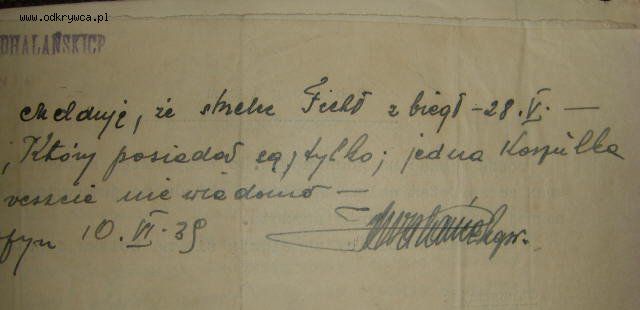 www.odkrywca.pl
DHALAŃSKICH
melduję, że strzelec Ficht zbiegł - 28.V. —
, Który posiadał tylko; jedna Koszulka
reszcie nie wiadomo —
10.VI.39